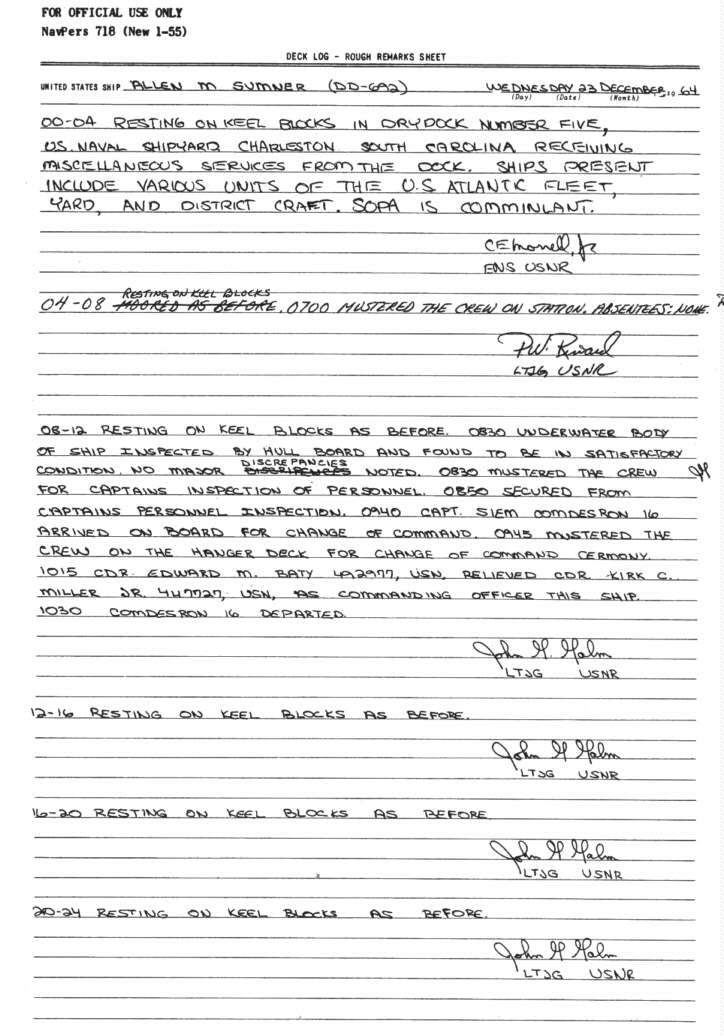 FOR OFFICIAL USE ONLY
NavPers 718 (New 1-55)
DECK LOG - ROUGH REMARKS SHEET
UNITED STATES SHIP ALLEN M SUMNER (DD-692) WEDNESDAY 23 DECEMBER, 19 64
(Day) (Date) (Month)
00-04 RESTING ON KEEL BLOCKS IN DRYDOCK NUMBER FIVE,
U.S. NAVAL SHIPYARD CHARLESTON SOUTH CAROLINA RECEIVING
MISCELLANEOUS SERVICES FROM THE DOCK. SHIPS PRESENT
INCLUDE VARIOUS UNITS OF THE U.S ATLANTIC FLEET,
YARD, AND DISTRICT CRAFT. SOPA IS COMMINLANT.
ENS USNR
RESTING ON KEEL BLOCKS
04-08 MOORED AS BEFORE. 0700 MUSTERED THE CREW ON STATION. ABSENTEES: NONE.
LTJG USNR
08-12 RESTING ON KEEL BLOCKS AS BEFORE. 0830 UNDERWATER BODY
OF SHIP INSPECTED BY HULL BOARD AND FOUND TO BE IN SATISFACTORY
DISCREPANCIES
CONDITION. NO MAJOR NOTED. 0830 MUSTERED THE CREW
FOR CAPTAINS INSPECTION OF PERSONNEL. 0850 SECURED FROM
CAPTAINS PERSONNEL INSPECTION. 0940 CAPT. SIEM COMDESRON 16
ARRIVED ON BOARD FOR CHANGE OF COMMAND. 0945 MUSTERED THE
CREW ON THE HANGER DECK FOR CHANGE OF COMMAND CERMONY.
1015 CDR. EDWARD M. BATY 492977, USN, RELIEVED CDR KIRK C.
MILLER JR. 447727, USN, AS COMMANDING OFFICER THIS SHIP.
1030 COMDESRON 16 DEPARTED.
John H. Halm
LTJG USNR
12-16 RESTING ON KEEL BLOCKS AS BEFORE.
John H Halm
LTJG USNR
16-20 RESTING ON KEEL BLOCKS AS BEFORE
John H Halm
LTJG USNR
20-24 RESTING ON KEEL BLOCKS AS BEFORE.
John H Halm
LTJG USNR